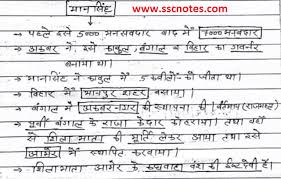 www.sscnotes.com
मानसिंह
→ पहले इसे 5000 मनसबदार बाद में 7000 मनसबदार
→ अकबर ने इसे काबुल, बंगाल व बिहार का गवर्नर
बनाया था।
→ मानसिंह ने काबुल में 5 कबीलों को जीता था।
→ बिहार में मानपुर शहर बसाया।
→ बंगाल में अकबरनगर की स्थापना की वर्तमान (राजमहल)
→ पूर्वी बंगाल के राजा केदार को हराया। तथा वहाँ
से शिला माता की मूर्ति लेकर आया तथा इसे
आमेर में स्थापित करवाया।
→ शिला माता आमेर के कछवाहा वंश की ईष्टदेवी है।